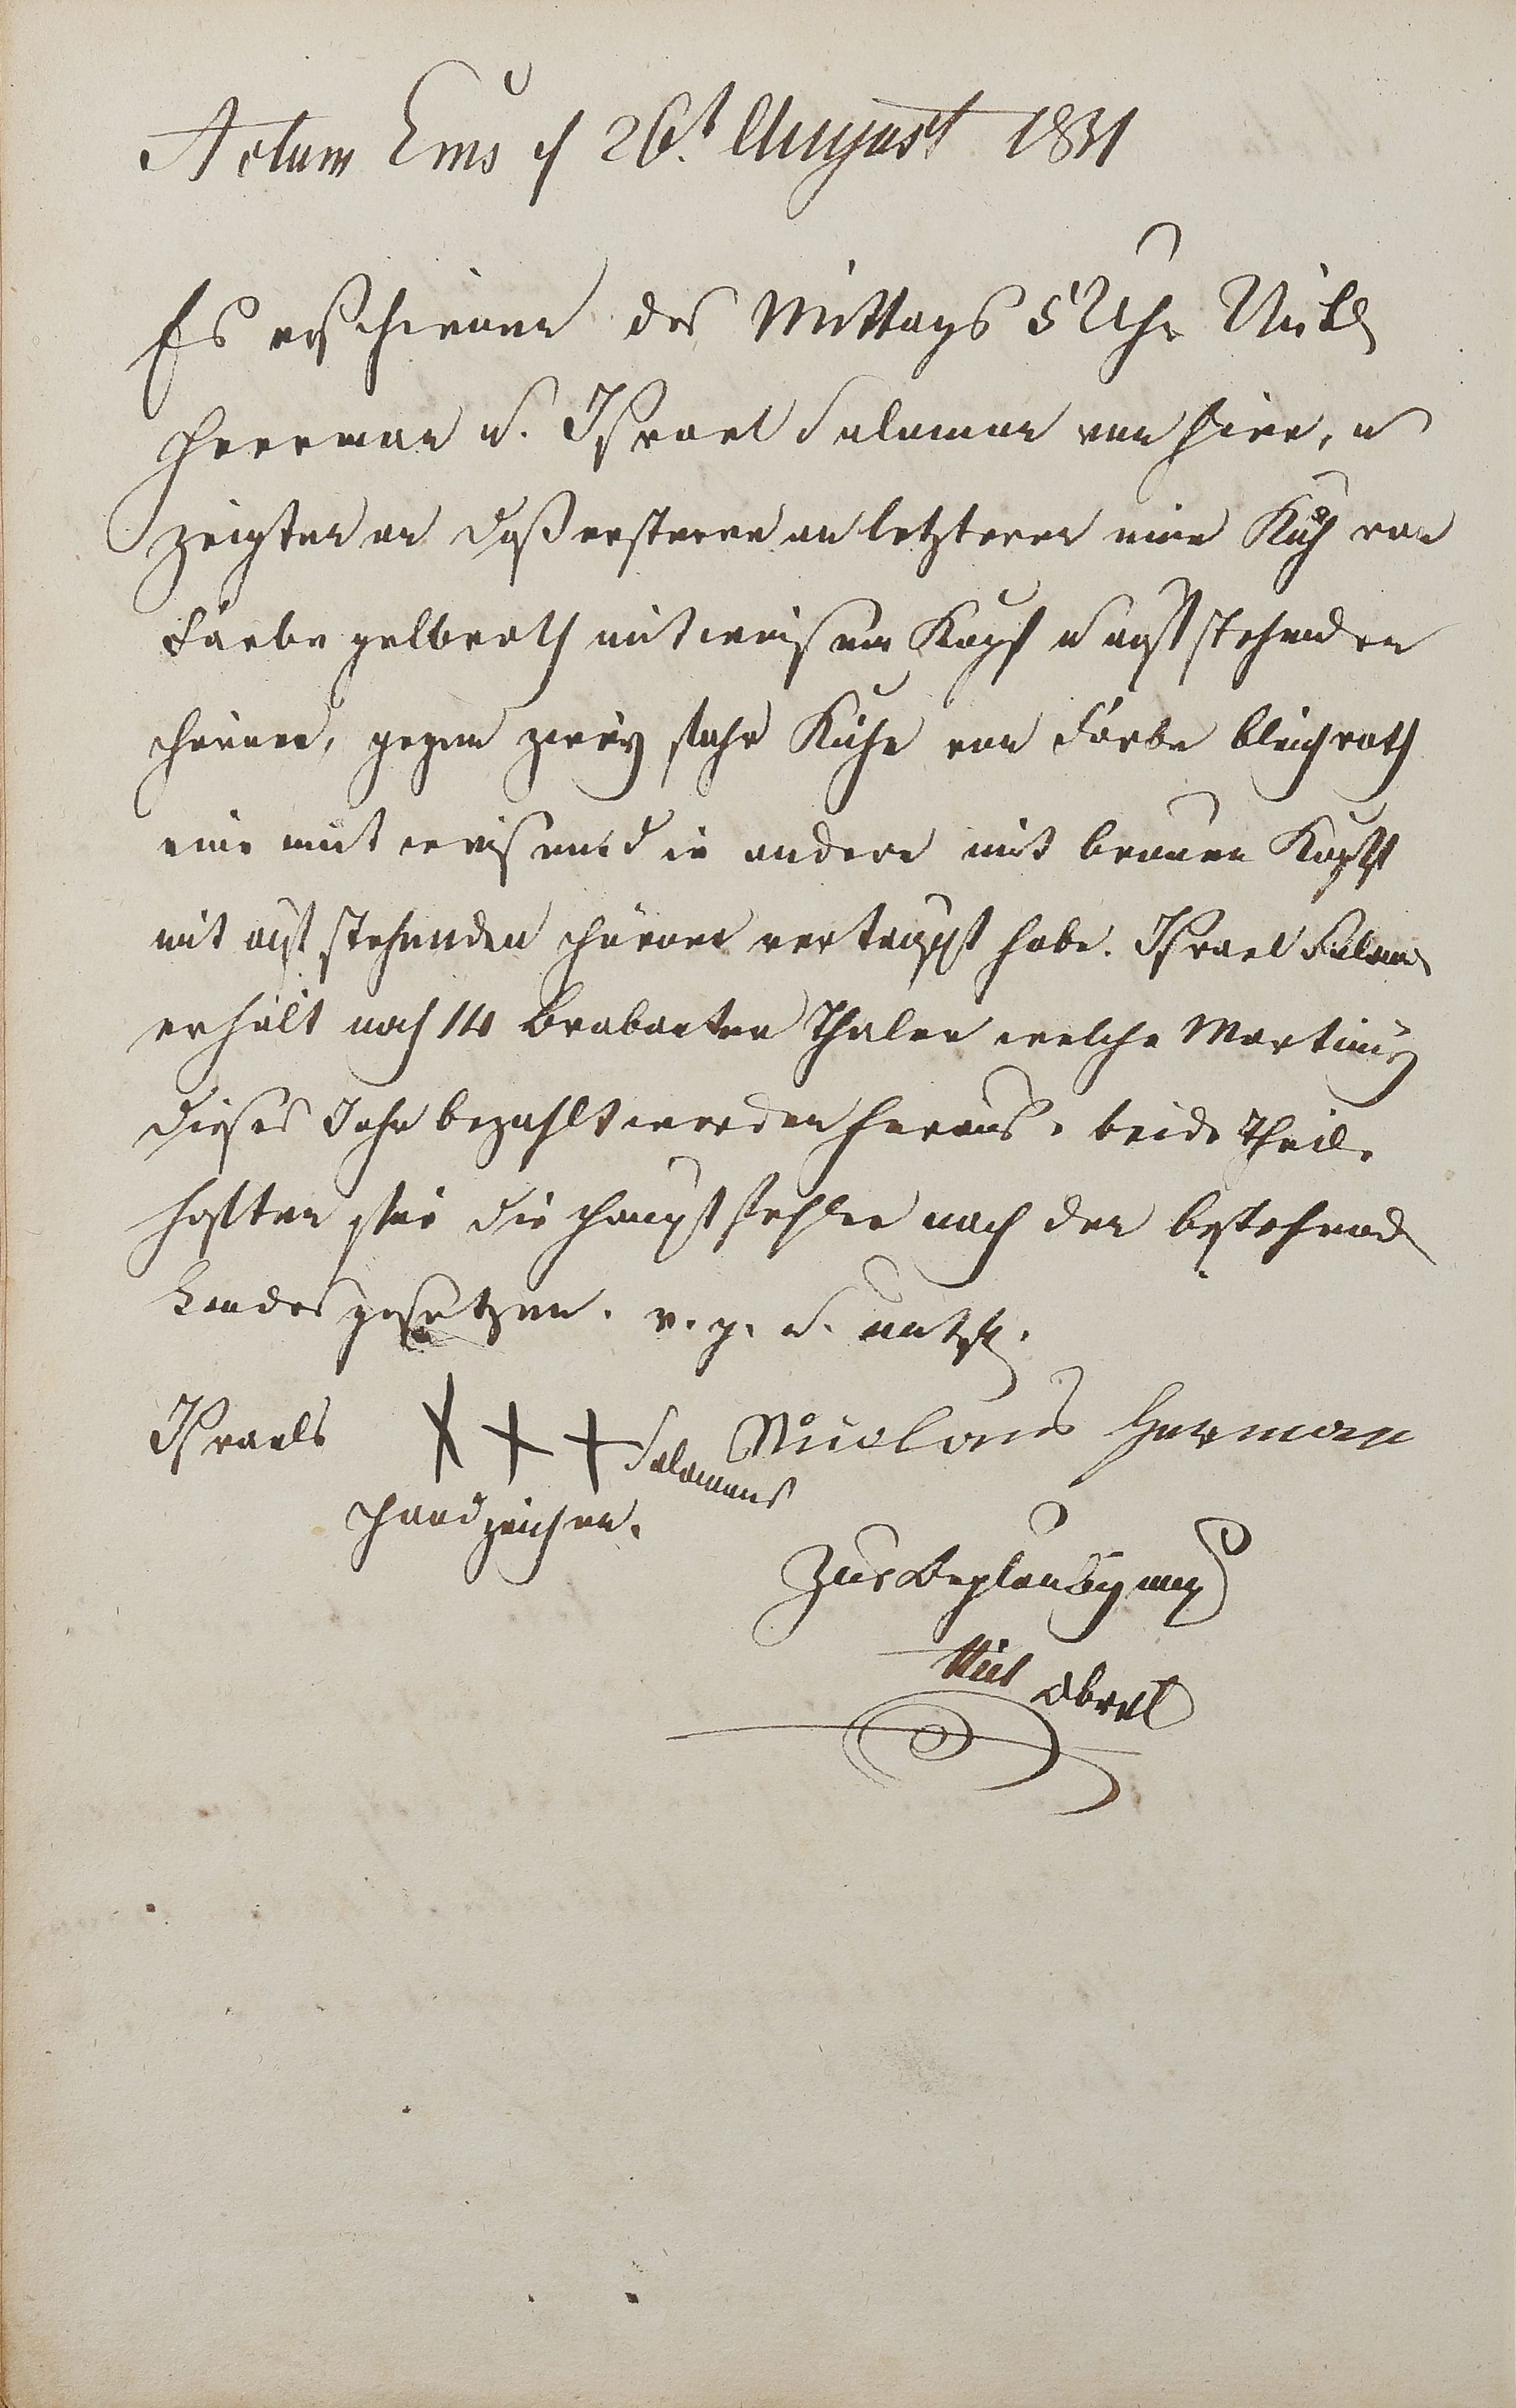 Actum Ems d 26t. August 1831
Es erschienen des Mittags 5 Uhr Nickl
Herrman u. Israel Salamon von hier, u
zeigten an daß ersterer an letzteren eine Kuh von
Farbe gelbroth mit weisem Kopf u aufstehenden
Hörner, gegen zwey Kühe von Farbe bleichroth
eine mit weisem die andere mit braunen Kopf
mit aufstehenden Hörner vertauscht habe. Israel Salam
erhält noch 14 Brabanter Thaler welche Martiny
dieses Jahr bezahlt werden heraus. beide Theile
haften für die Hauptfehler nach den bestehend
Landesgesetzen. v. g. u. untsch.
Israels XXX Salamons Nicolaus Herman
Handzeichen.
Zur Beglaubigung